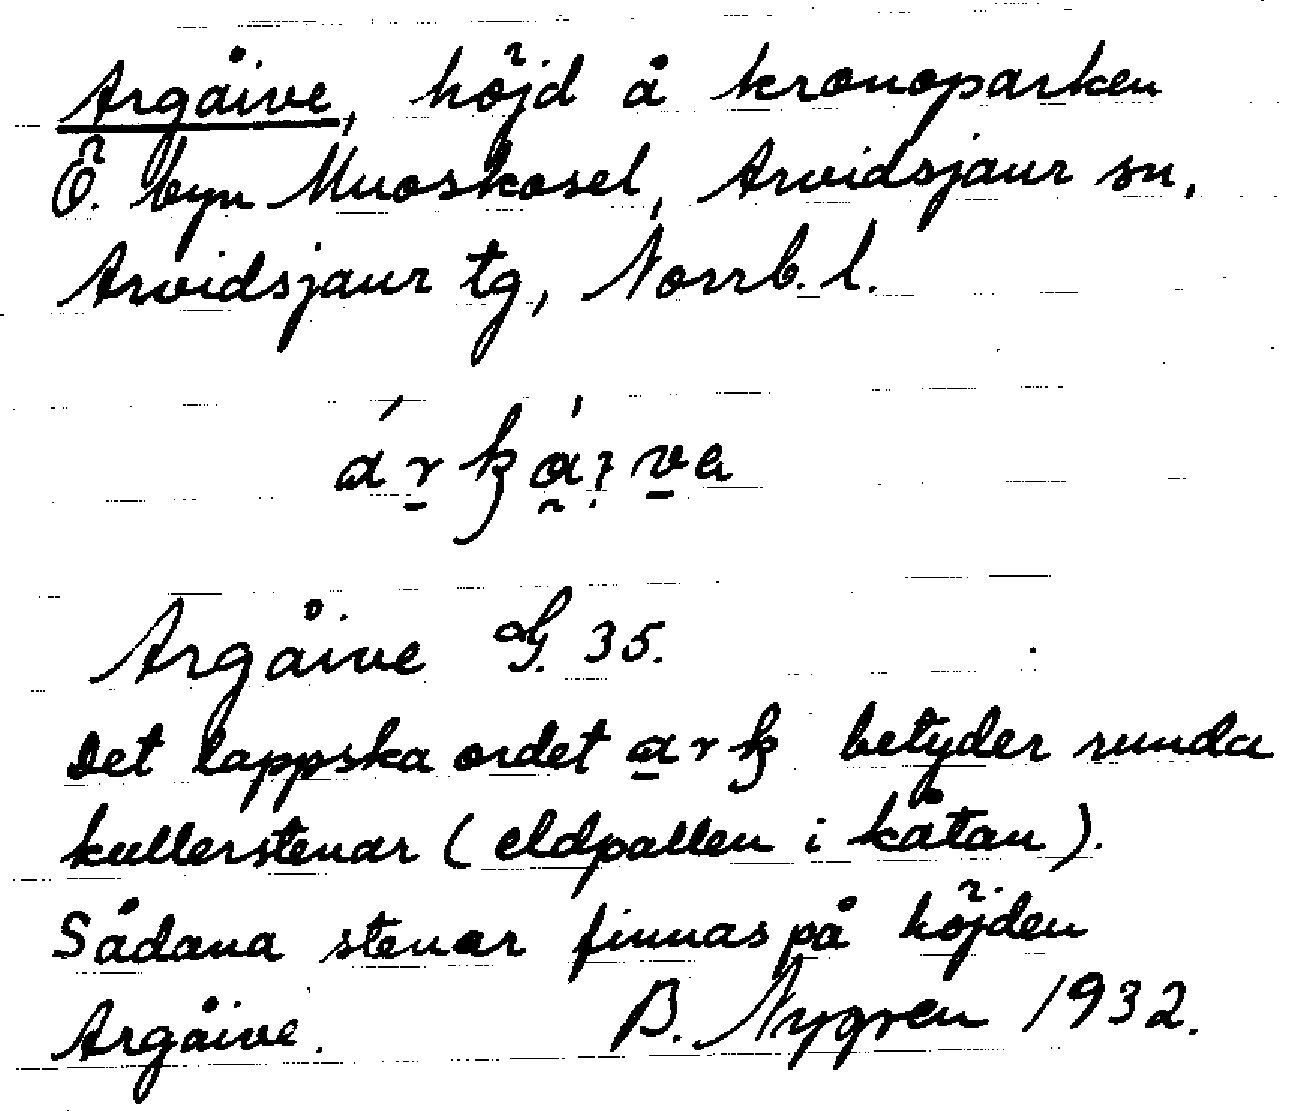 Argåive, höjd å kronoparken
Ö. byn Muoskosel, Arvidsjaur sn,
Arvidsjaur tg, Norrb. l.
Argåive G. 35.
Det lappska ordet ark betyder runda
kullerstenar (eldpallen i kåtan).
Sådana stenar finnas på höjden
Argåive. B. Nygren 1932.